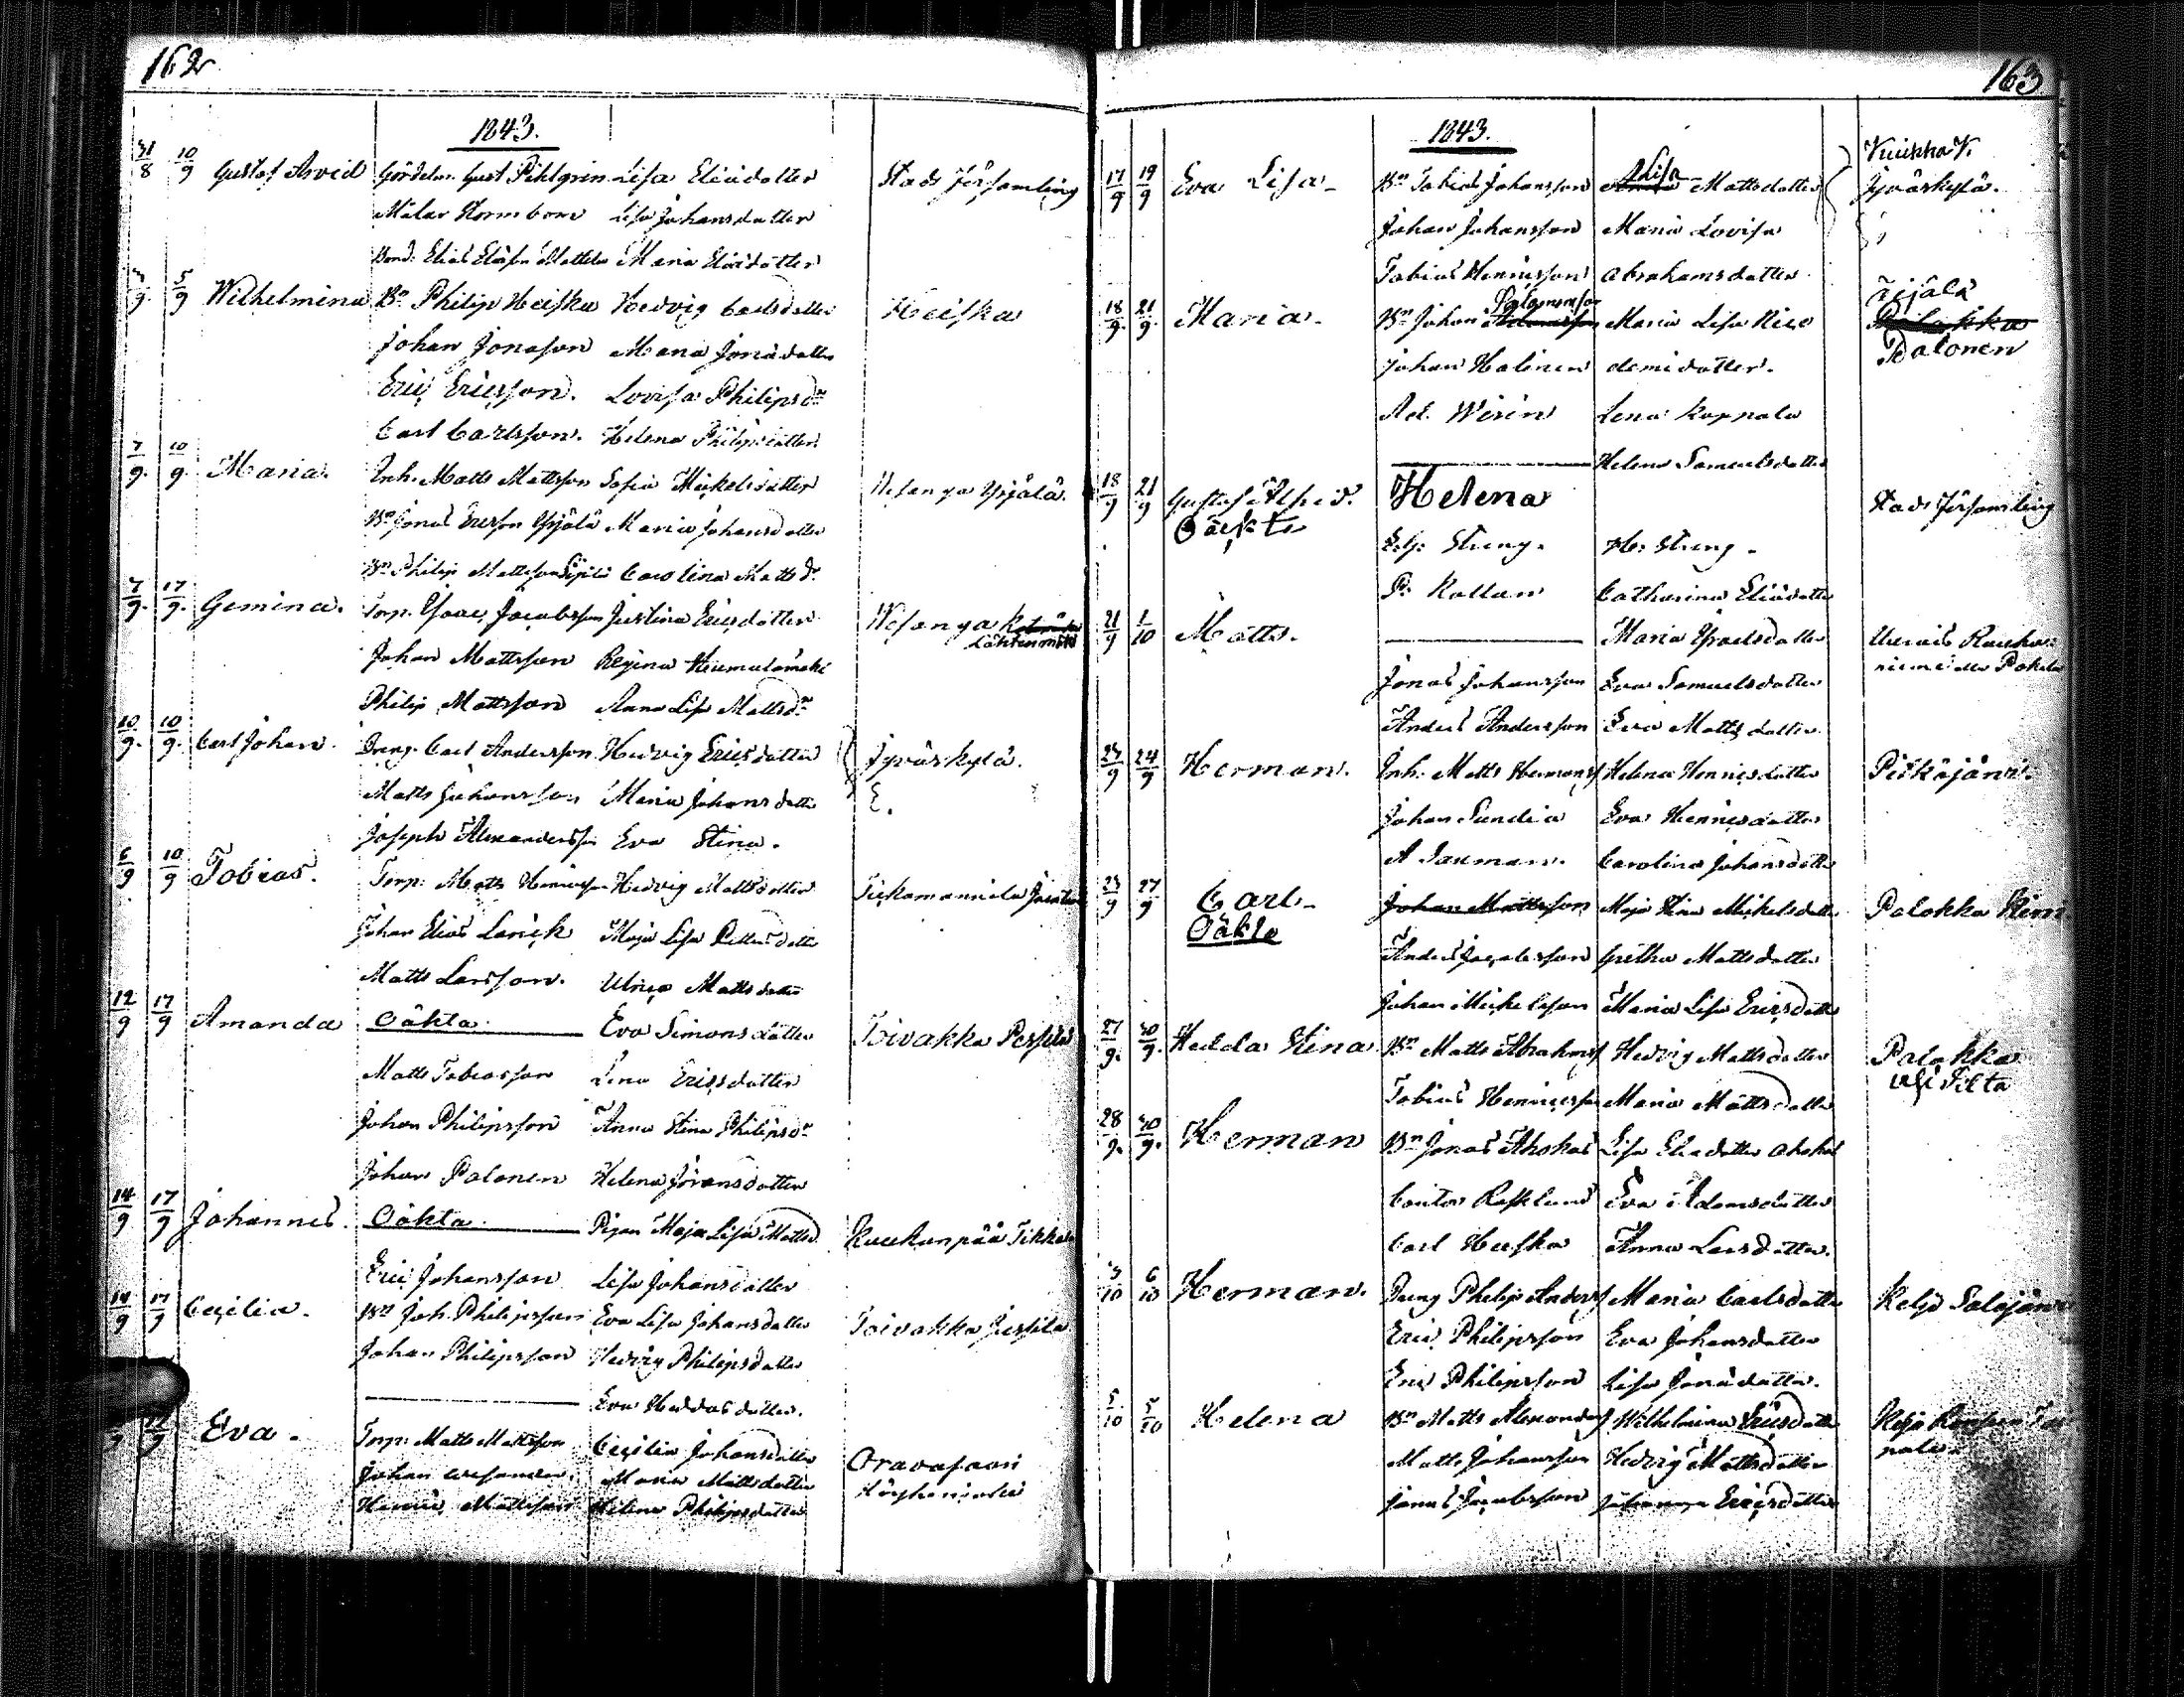 162
1843.
31/8 10/9 Gustaf Arvid Gördelm. Gust Pihlgrén Lisa Eliædotter Stads församling
Målar Hornborn Lisa Johansdotter
Bond. Elias Eliæson Mattila Maria Eliædotter
5/9 Wilhelmina Bn Philip Heiska Hedvig Carlsdotter Heiska
Johan Jonasson Maria Jonædotter
Eric Ericsson. Lovisa Philipsdr
Carl Carlsson. Helena Philipsdotter
7/9. 10/9. Maria. Inh. Matts Mattsson Sofia Mickelsdotter Vesanga Yijälä.
Bn Jonas Ericson Yijälä Maria Johansdotter
Bn Philip Mattsson Carolina Matts dr
7/9. 17/9. Gemina. Torp. Ysaac Jacobsson Justina Ericsdotter Wesanga
Johan Mattsson Regina Humalamäki
Philip Mattsson Anna Lisa Mattsdr
10/9. 10/9. Carl Johan. Dreng. Carl Andersson Hedvig Ericsdotter Jyväskylä.
Matts Johansson Maria Johansdotter
Joseph Alexandersson Eva Stina.
6/9 10/9 Tobias. Torp. Matts Henricsson Hedvig Mattsdotter Tickamannila
Johan Elias Lanick Maja Lisa Pettersdotter
Matts Larsson. Ulrica Mattsdotter
12/9 17/9 Amanda Oäkta Eva Simonsdotter Toivakka
Matts Tobiasson Lena Ericsdotter
Johan Philipsson Anna Stina Philipsdr
Johan Palonen Helena Jöransdotter
14/9 17/9 Johannes. Oäkta Pigan Maja Lisa Mattsd. Kuukanpää Tikka
Eric Johansson Lisa Johansdotter
14/9 17/9 Cecilia. Bn Joh. Philipsson Eva Lisa Johansdotter Toivakka
Johan Philipsson Hedvig Philipsdotter
Eva Heddasdotter.
Eva. Torp. Matts Mattsson Cecilia Johansdotter Oravasaari
Johan Maria Mattsdotter
Henric Mattsson Helena Philipsdotter
163
1843.
17/9 19/9 Eva Lisa Bn Tobias Johansson Lisa Mattsdotter Vuikka V. Jyväskylä.
Johan Johansson Maria Lovisa
Tobias Henricsson Abrahamsdotter
18/9. 21/9. Maria. Bn Johan Salomonsson Maria Lisa Nico Äijälä Palonen
Johan Halinen demidotter.
Ad. Wirén Lena Kaspala
Helena Samuelsdotter
18/9 21/9 Gustaf Alfred. Oäckta Helena Stads församling
E. J. Streng. H. Streng.
P. Kollan Catharina Eliædotter
21/9 1/10 Matts. Maria Ysraelsdotter
Jonas Johansson Eva Samuelsdotter
Anders Andersson Eva Mattsdotter.
23/9 24/9 Herman. Inh. Matts Hermans Helena Henricsdotter Pitkäjärvi.
Johan Sundia Eva Henricsdotter
A Saxman. Carolina Johansdotter
23/9 27/9 Carl. Oäkta Johan Mattsson Maja Stina Mickelsdotter Palokka
Anders Jacobsson Gretha Mattsdotter
Johan Mickelsson Maria Lisa Ericsdotter
27/9. 30/9. Hedda Stina Bn Matts Abrahams Hedvig Mattsdotter Palokka
Tobias Henricsson Maria Mattsdotter
28/9. 30/9. Herman Bn Jonas Ahokas Lisa Eliædotter Ahokas
Cantor Rosklund Eva Adamsdotter
Carl Heiska Anna Larsdotter.
3/10 6/10 Herman. Dreng Philip Anders Maria Carlsdotter Keljo Salojärvi
Eric Philipsson Eva Johansdotter
Eric Philipsson Lisa Jonædotter.
5/10 5/10 Helena Bn Matts Alexander Wilhelmina Ericsdotter Keljo
Matts Johansson Hedvig Mattsdotter
Jonas Jacobsson Johanna Ericsdotter